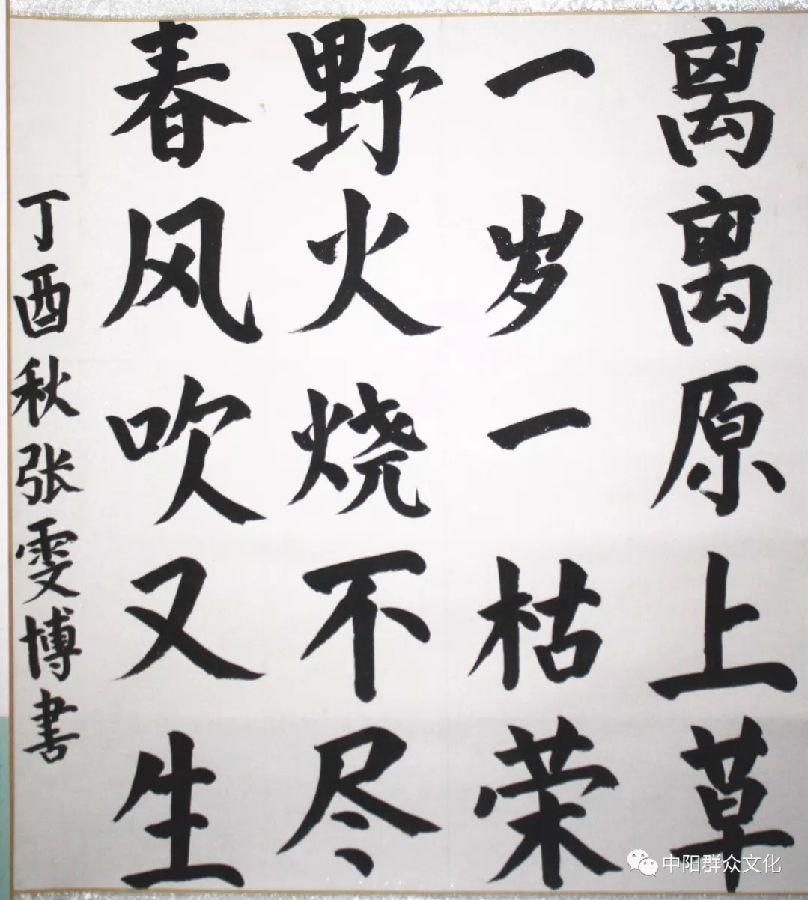 离离原上草
一岁一枯荣
野火烧不尽
春风吹又生
丁酉秋张雯博書
中阳群众文化